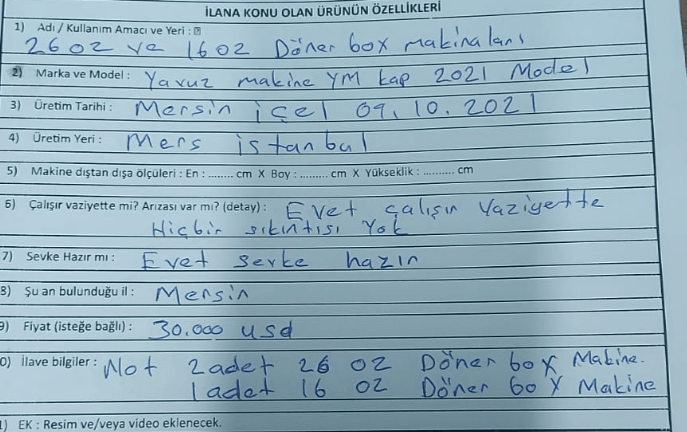 İLANA KONU OLAN ÜRÜNÜN ÖZELLİKLERİ
1) Adı / Kullanım Amacı ve Yeri :
26 oz ve 16 oz Döner box makinaları
2) Marka ve Model : Yavuz makine YM kap 2021 Model
3) Üretim Tarihi : Mersin içel 09.10.2021
4) Üretim Yeri : Mers istanbul
5) Makine dıştan dışa ölçüleri : En : ........ cm X Boy : ......... cm X Yükseklik : .......... cm
6) Çalışır vaziyette mi? Arızası var mı? (detay) : Evet çalışır vaziyette
Hiçbir sıkıntısı yok
7) Sevke Hazır mı : Evet sevke hazır
8) Şu an bulunduğu il : Mersin
9) Fiyat (isteğe bağlı) : 30.000 usd
0) İlave bilgiler : Not 2 adet 26 oz Döner box Makine.
1 adet 16 oz Döner box Makine
1) EK : Resim ve/veya video eklenecek.